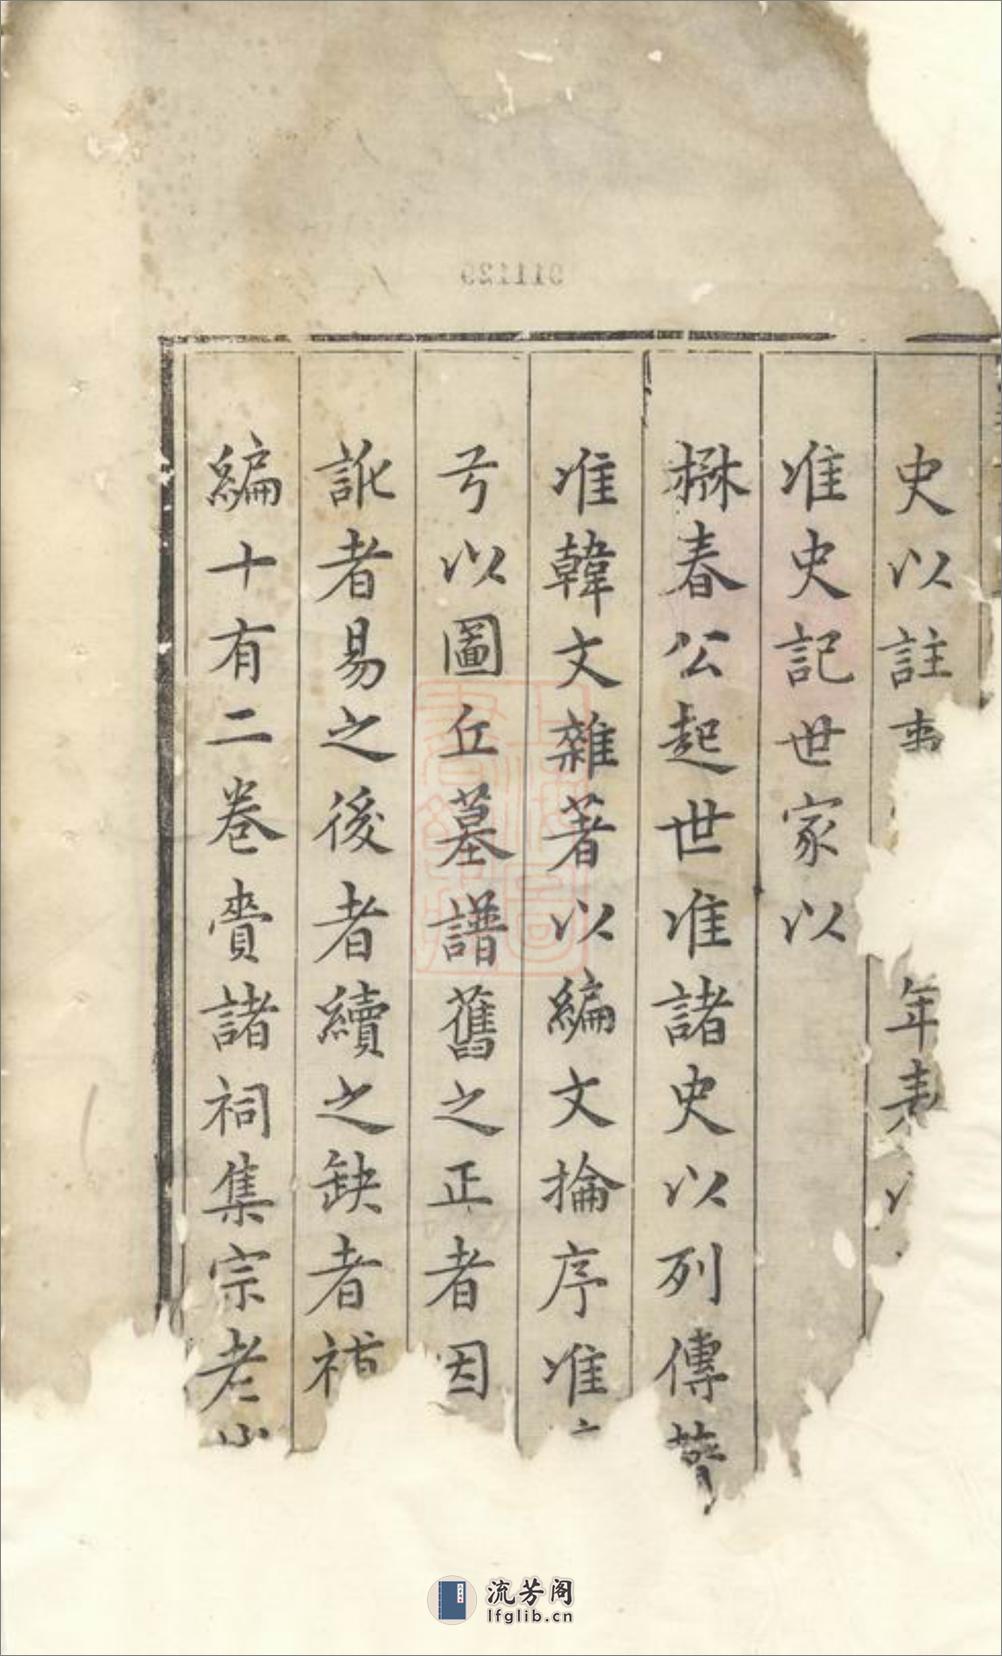 史以註事年表以
准史記世家以
楙春公起世准諸史以列傳
准韓文雜著以編文掄序准
兮以圖丘墓譜舊之正者因
訛者易之後者續之缺者補
編十有二卷賷諸祠集宗老
911129
流芳阁
lfglib.cn